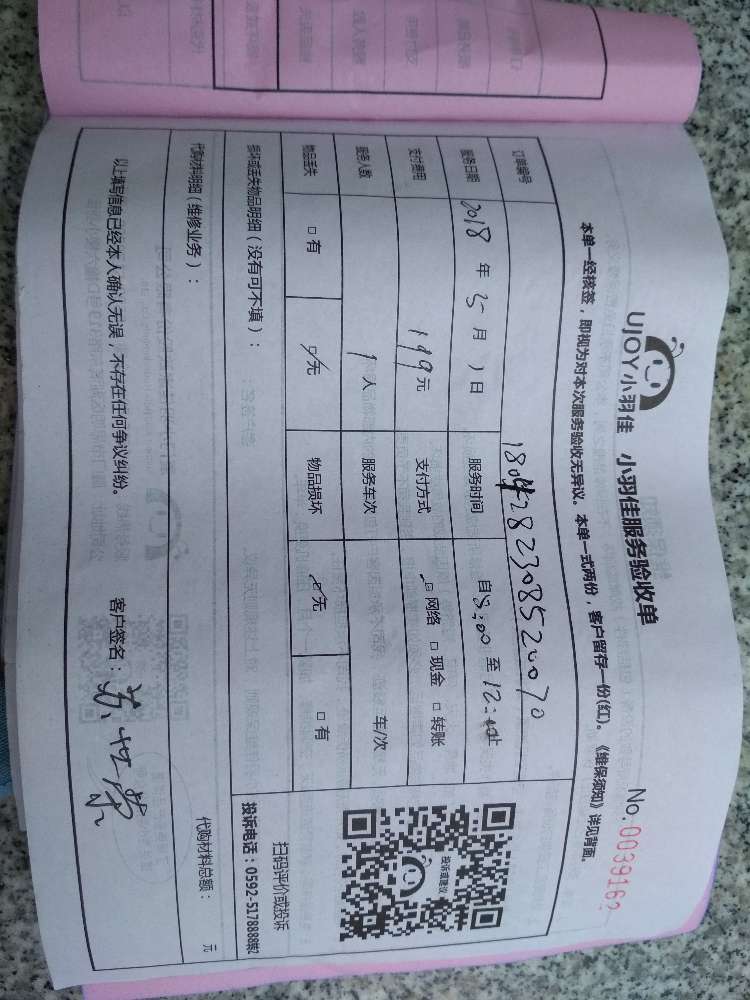 UJOY小羽佳 小羽佳服务验收单 No.
本单一经核签，即视为对本次服务验收无异议。本单一式两份，客户留存一份(红)。《维保须知》详见背面。
订单编号
服务日期 2018 年 5 月 1 日 服务时间 自 8:00 至 12:00止
支付费用 199元 支付方式 ☑网络 □现金 □转账
服务人数 1 人 服务车次 车/次
物品丢失 □有 ☑无 物品损坏 ☑无 □有
损坏或丢失物品明细（没有可不填）：
投诉或建议
扫码评价或投诉
投诉电话：0592-5178888转2
代购材料明细（维修业务）： 代购材料总额： 元
以上填写信息已经本人确认无误，不存在任何争议纠纷。 客户签名：